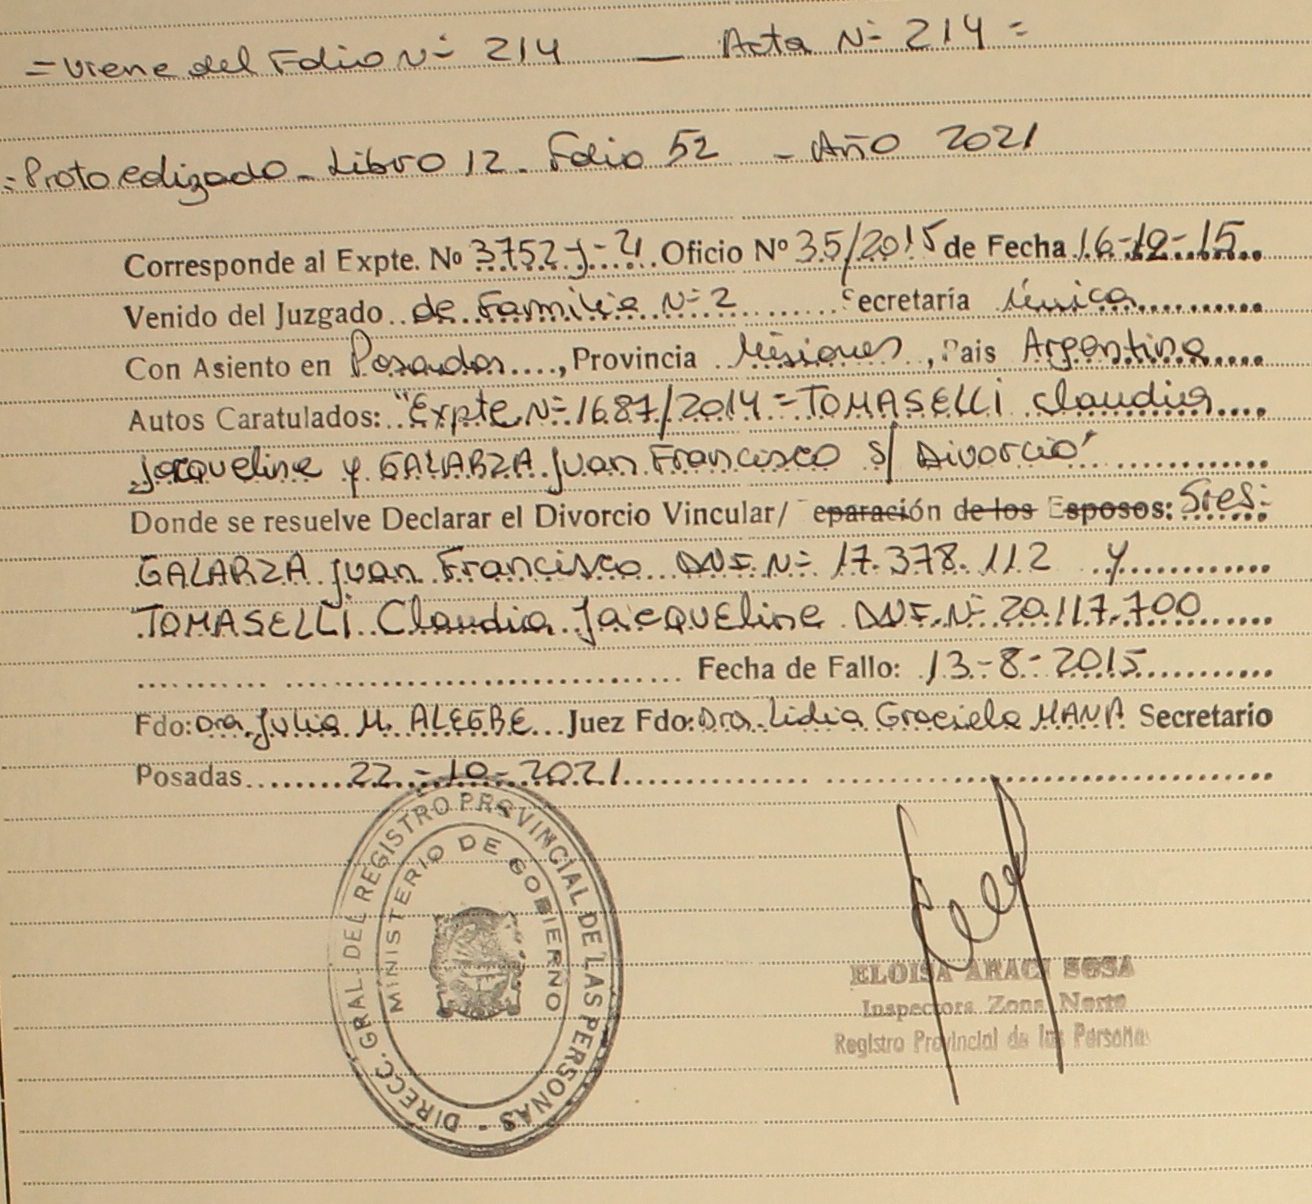 = Viene del Folio Nº 214 — Acta Nº 214 =
= Protocolizado - Libro 12 - Folio 52 - Año 2021
Corresponde al Expte. Nº 3752-J-21 Oficio Nº 35/2015 de Fecha 16-12-15
Venido del Juzgado de Familia Nº 2 Secretaría Única
Con Asiento en Posadas, Provincia Misiones, Pais Argentina
Autos Caratulados: "Expte Nº 1687/2014 = TOMASELLI Claudia
Jacqueline y GALARZA Juan Francisco s/ Divorcio"
Donde se resuelve Declarar el Divorcio Vincular/ eparación de los Esposos: Sres:
GALARZA Juan Francisco DNI. Nº 17.378.112 y
TOMASELLI Claudia Jacqueline DNI. Nº 20.117.700
Fecha de Fallo: 13-8-2015
Fdo: Dra. Julia M. ALEGRE Juez Fdo: Dra. Lidia Graciela Secretario
Posadas 22-10-2021
DIRECC. GRAL. DEL REGISTRO PROVINCIAL DE LAS PERSONAS -
MINISTERIO DE GOBIERNO
ELOISA ARACI SOSA
Inspectora Zona Norte
Registro Provincial de las Personas